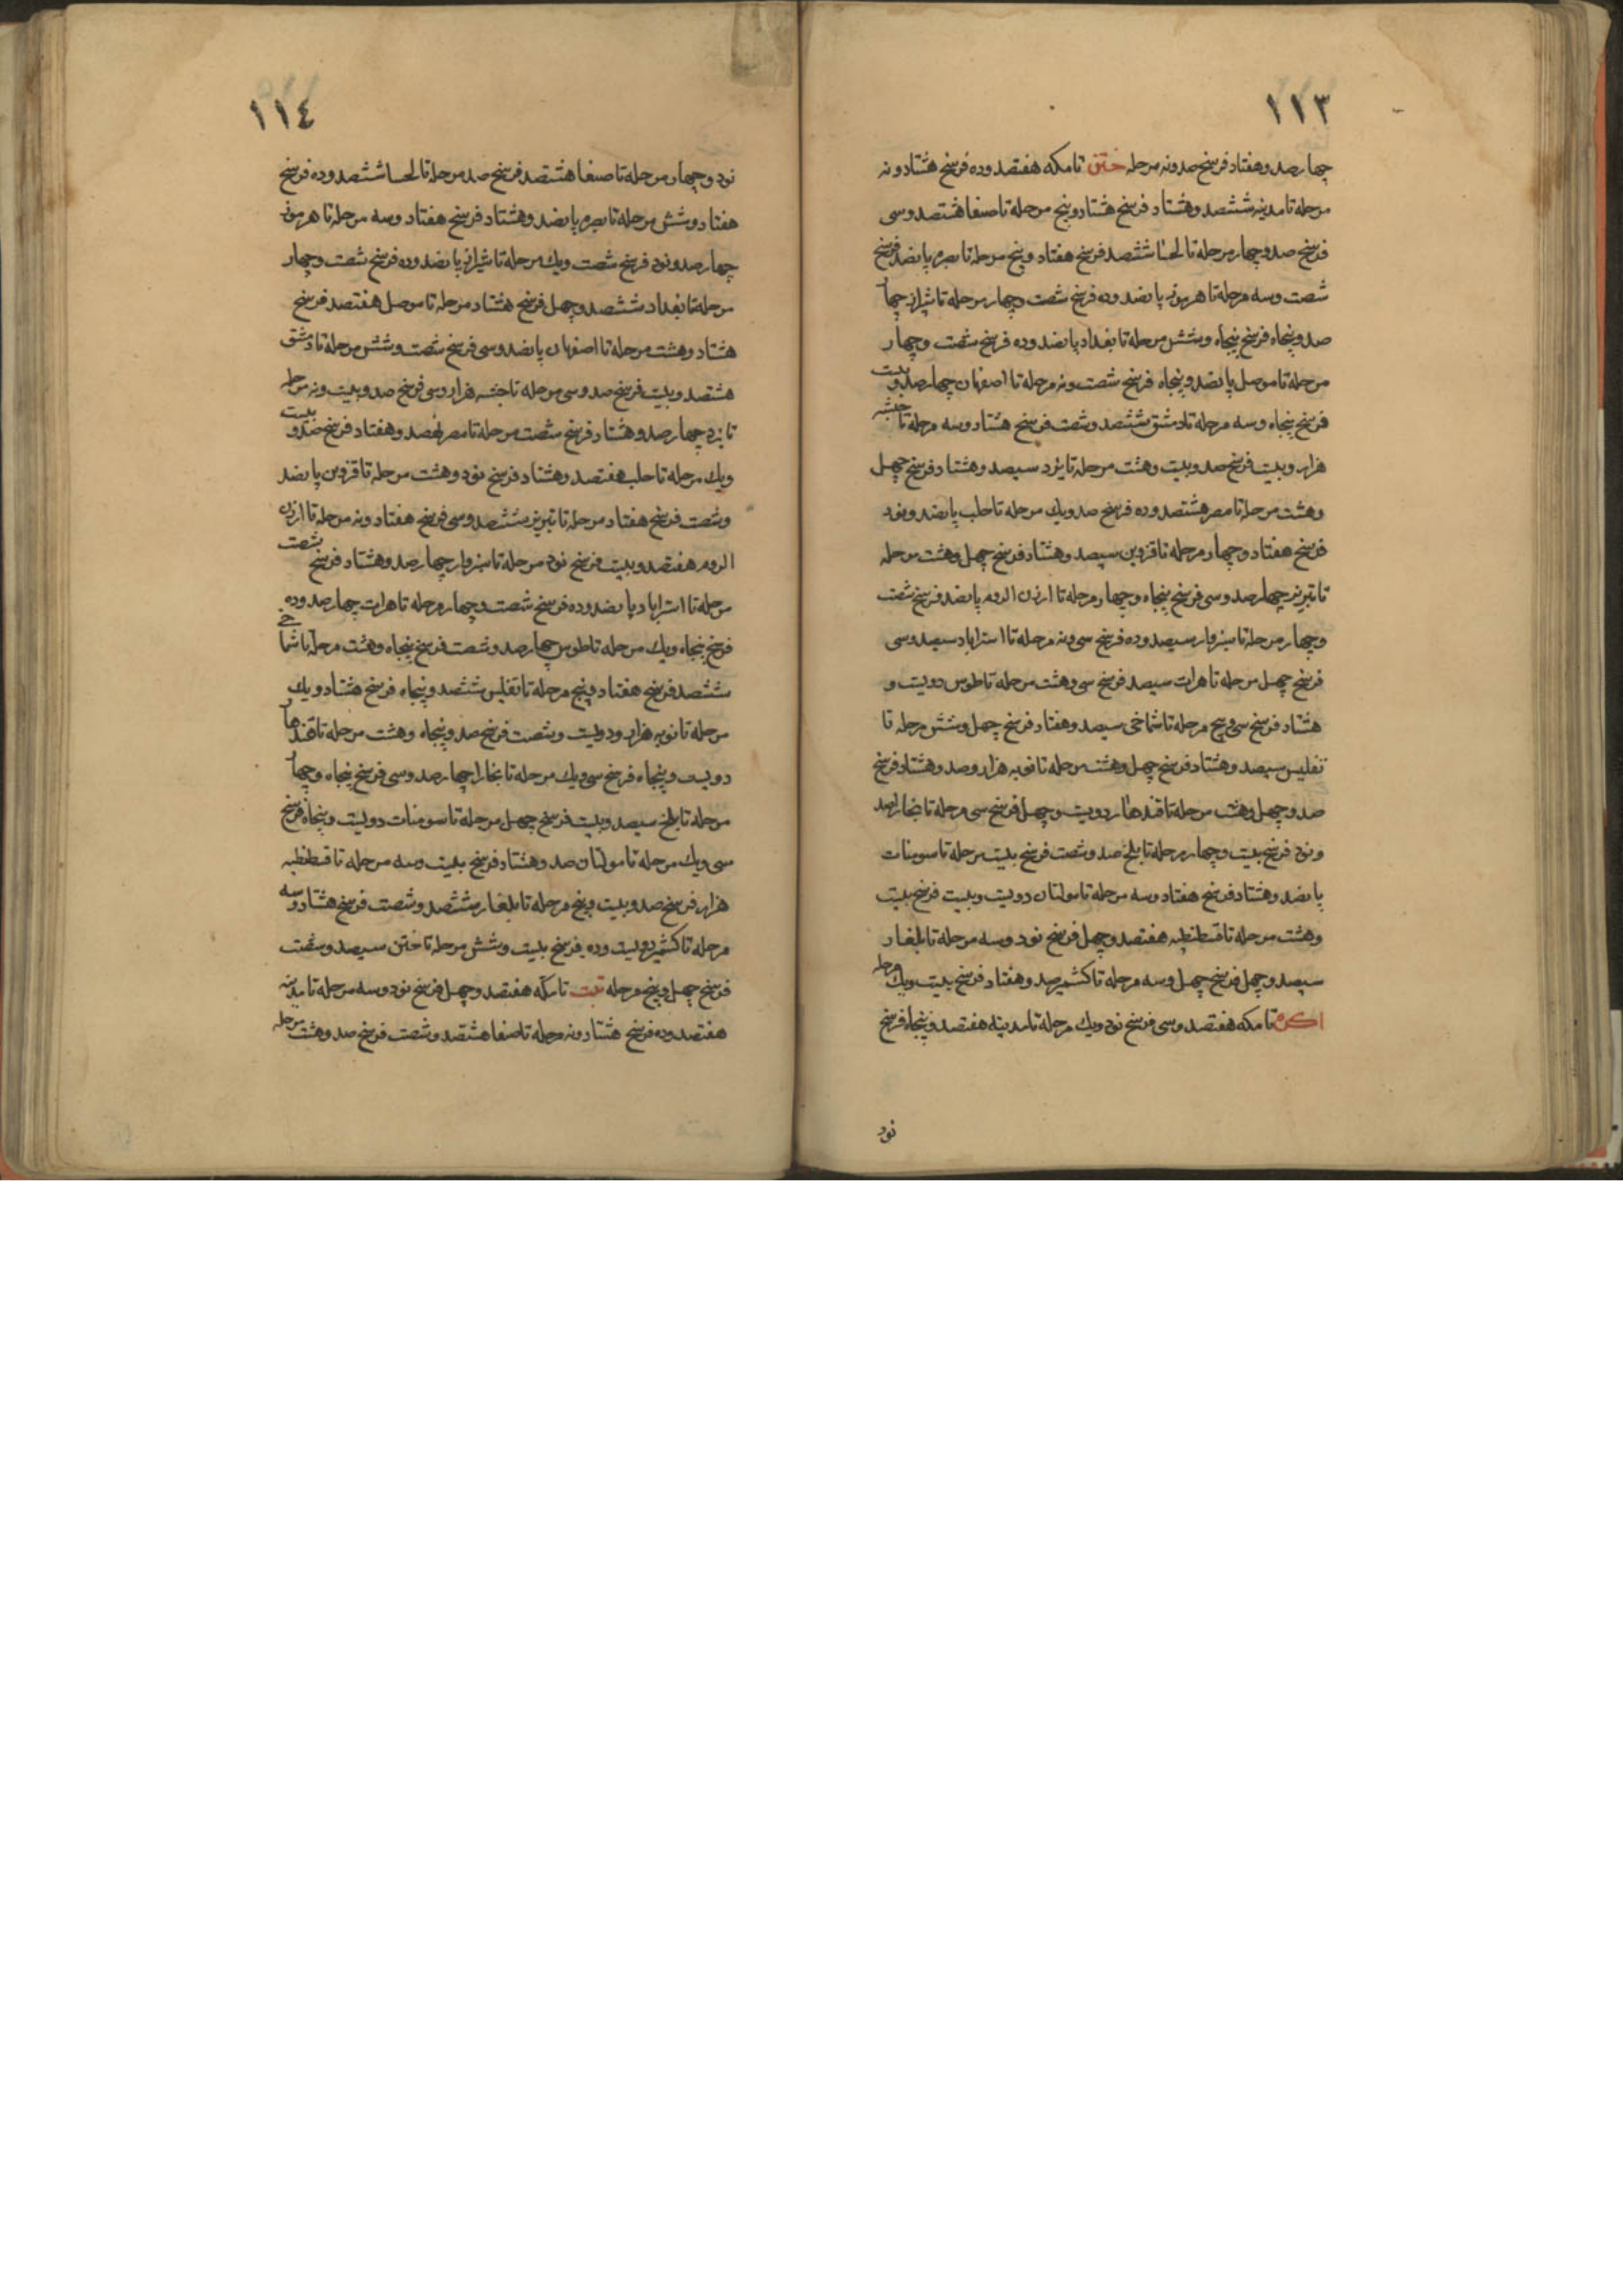 ١١٣
چهارصد و هفتاد فرسخ صد و نه مرحله ختن تا مکه هفتصد و ده فرسخ هشتاد و نه
مرحله تا مدینه ششصد و هشتاد فرسخ هشتاد و پنج مرحله تا صنعا هشتصد و سی
فرسخ صد و چهار مرحله تا لحسا ششصد فرسخ هفتاد و پنج مرحله تا بصره پانصد فرسخ
شصت و سه مرحله تا هرموز پانصد و ده فرسخ شصت و چهار مرحله تا شیراز چهار
صد و پنجاه فرسخ پنجاه و شش مرحله تا بغداد پانصد و ده فرسخ شصت و چهار
مرحله تا موصل پانصد و پنجاه فرسخ شصت و نه مرحله تا اصفهان چهارصد و بیست
فرسخ پنجاه و سه مرحله تا دمشق ششصد و شصت فرسخ هشتاد و سه مرحله تا حبشه
هزار و بیست فرسخ صد و بیست و هشت مرحله تا یزد سیصد و هشتاد فرسخ چهل
و هشت مرحله تا مصر هشتصد و ده فرسخ صد و یک مرحله تا حلب پانصد و نود
فرسخ هفتاد و چهار مرحله تا قزوین سیصد و هشتاد فرسخ چهل و هشت مرحله
تا تبریز چهارصد و سی فرسخ پنجاه و چهار مرحله تا ارزن الروم پانصد فرسخ شصت
و چهار مرحله تا سبزوار سیصد و ده فرسخ سی و نه مرحله تا استراباد سیصد و سی
فرسخ چهل مرحله تا هرات سیصد فرسخ سی و هشت مرحله تا طوس دویست و
هشتاد فرسخ سی و پنج مرحله تا شماخی سیصد و هفتاد فرسخ چهل و شش مرحله تا
تفلیس سیصد و هشتاد فرسخ چهل و هشت مرحله تا نوبه هزار و صد و هشتاد فرسخ
صد و چهل و هشت مرحله تا قندهار دویست و چهل فرسخ سی مرحله تا بخارا صد
و نود فرسخ بیست و چهار مرحله تا بلخ صد و شصت فرسخ بیست مرحله تا سومنات
پانصد و هشتاد فرسخ هفتاد و سه مرحله تا مولتان دویست و بیست فرسخ بیست
و هشت مرحله تا قسطنطیه هفتصد و چهل فرسخ نود و سه مرحله تا بلغار
سیصد و چهل فرسخ چهل و سه مرحله تا کشمیر صد و هفتاد فرسخ بیست و یک مرحله
اکره تا مکه هفتصد و سی فرسخ نود و یک مرحله تا مدینه هفتصد و پنجاه فرسخ
نود
١١٤
نود و چهار مرحله تا صنعا هشتصد فرسخ صد مرحله تا لحسا ششصد و ده فرسخ
هفتاد و شش مرحله تا بصره پانصد و هشتاد فرسخ هفتاد و سه مرحله تا هرموز
چهارصد و نود فرسخ شصت و یک مرحله تا شیراز پانصد و ده فرسخ شصت و چهار
مرحله تا بغداد ششصد و چهل فرسخ هشتاد مرحله تا موصل هفتصد فرسخ
هشتاد و هشت مرحله تا اصفهان پانصد و سی فرسخ شصت و شش مرحله تا دمشق
هشتصد و بیست فرسخ صد و سی مرحله تا حبشه هزار و سی فرسخ صد و بیست و نه مرحله
تا یزد چهارصد و هشتاد فرسخ شصت مرحله تا مصر نهصد و هفتاد فرسخ صد و بیست
و یک مرحله تا حلب هفتصد و هشتاد فرسخ نود و هشت مرحله تا قزوین پانصد
و شصت فرسخ هفتاد مرحله تا تبریز ششصد و سی فرسخ هفتاد و نه مرحله تا ارزن
الروم هفتصد و بیست فرسخ نود مرحله تا سبزوار چهارصد و هشتاد فرسخ شصت
مرحله تا استراباد پانصد و ده فرسخ شصت و چهار مرحله تا هرات چهارصد و ده
فرسخ پنجاه و یک مرحله تا طوس چهارصد و شصت فرسخ پنجاه و هشت مرحله تا شماخی
ششصد فرسخ هفتاد و پنج مرحله تا تفلیس ششصد و پنجاه فرسخ هشتاد و یک
مرحله تا نوبه هزار و دویست و شصت فرسخ صد و پنجاه و هشت مرحله تا قندهار
دویست و پنجاه فرسخ سی و یک مرحله تا بخارا چهارصد و سی فرسخ پنجاه و چهار
مرحله تا بلخ سیصد و بیست فرسخ چهل مرحله تا سومنات دویست و پنجاه فرسخ
سی و یک مرحله تا مولتان صد و هشتاد فرسخ بیست و سه مرحله تا قسطنطیه
هزار فرسخ صد و بیست و پنج مرحله تا بلغار ششصد و شصت فرسخ هشتاد و سه
مرحله تا کشمیر دویست و ده فرسخ بیست و شش مرحله تا ختن سیصد و شصت
فرسخ چهل و پنج مرحله تبت تا مکه هفتصد و چهل فرسخ نود و سه مرحله تا مدینه
هفتصد و ده فرسخ هشتاد و نه مرحله تا صنعا هشتصد و شصت فرسخ صد و هشت مرحله